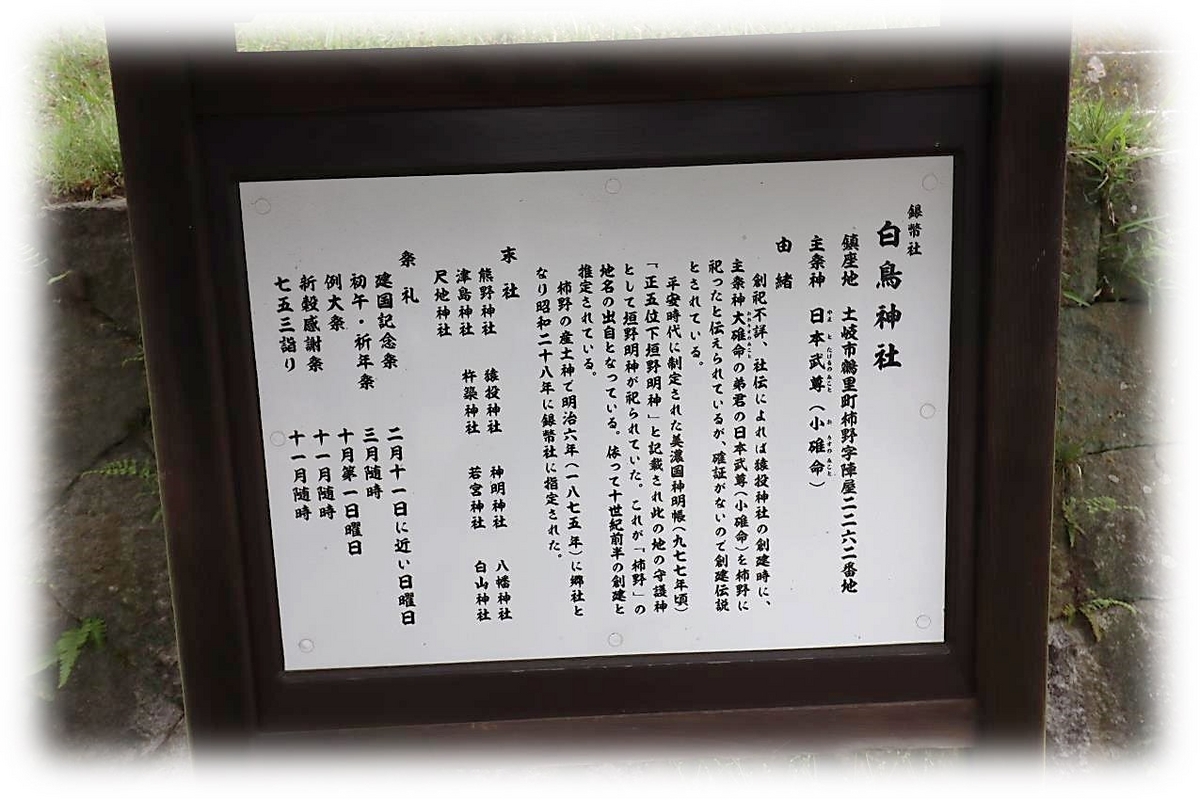 銀幣社
白鳥神社
鎮座地 土岐市鶴里町柿野字陣屋二二六二番地
主祭神 日本武尊（小碓命）
やまとたけるのみこと おうすのみこと
由緒
創祀不詳、社伝によれば猿投神社の創建時に、
主祭神大碓命の弟君の日本武尊（小碓命）を柿野に
おおうすのみこと
祀ったと伝えられているが、確証がないので創建伝説
とされている。
平安時代に制定された美濃国神明帳（九七七年頃）
「正五位下垣野明神」と記載され此の地の守護神
として垣野明神が祀られていた。これが「柿野」の
地名の出自となっている。依って十世紀前半の創建と
推定されている。
柿野の産土神で明治六年（一八七五年）に郷社と
なり昭和二十八年に銀幣社に指定された。
末社
熊野神社 猿投神社 神明神社 八幡神社
津島神社 杵築神社 若宮神社 白山神社
尺地神社
祭礼
建国記念祭 二月十一日に近い日曜日
初午・祈年祭 三月随時
例大祭 十月第一日曜日
新穀感謝祭 十一月随時
七五三詣り 十一月随時